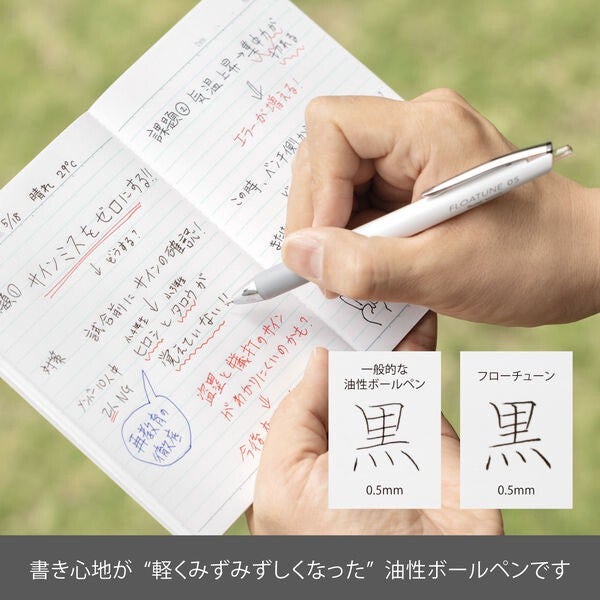 5/18 晴れ 29℃
課題①
サインミスをゼロにする!!
↓どうする?
試合前にサインの確認!
対策
↓
ヒロシとタロウが
覚えていない!!
メンバー10人中
2人NG
再教育の
徹底を
盗塁と犠打のサイン
がわかりにくいのかも?
↓
課題② 気温上昇→集中力が
↓
エラーが増える!
この時、ベンチ側が
FLOATUNE 05
一般的な
油性ボールペン
黒
0.5mm
フローチューン
黒
0.5mm
書き心地が “軽くみずみずしくなった” 油性ボールペンです